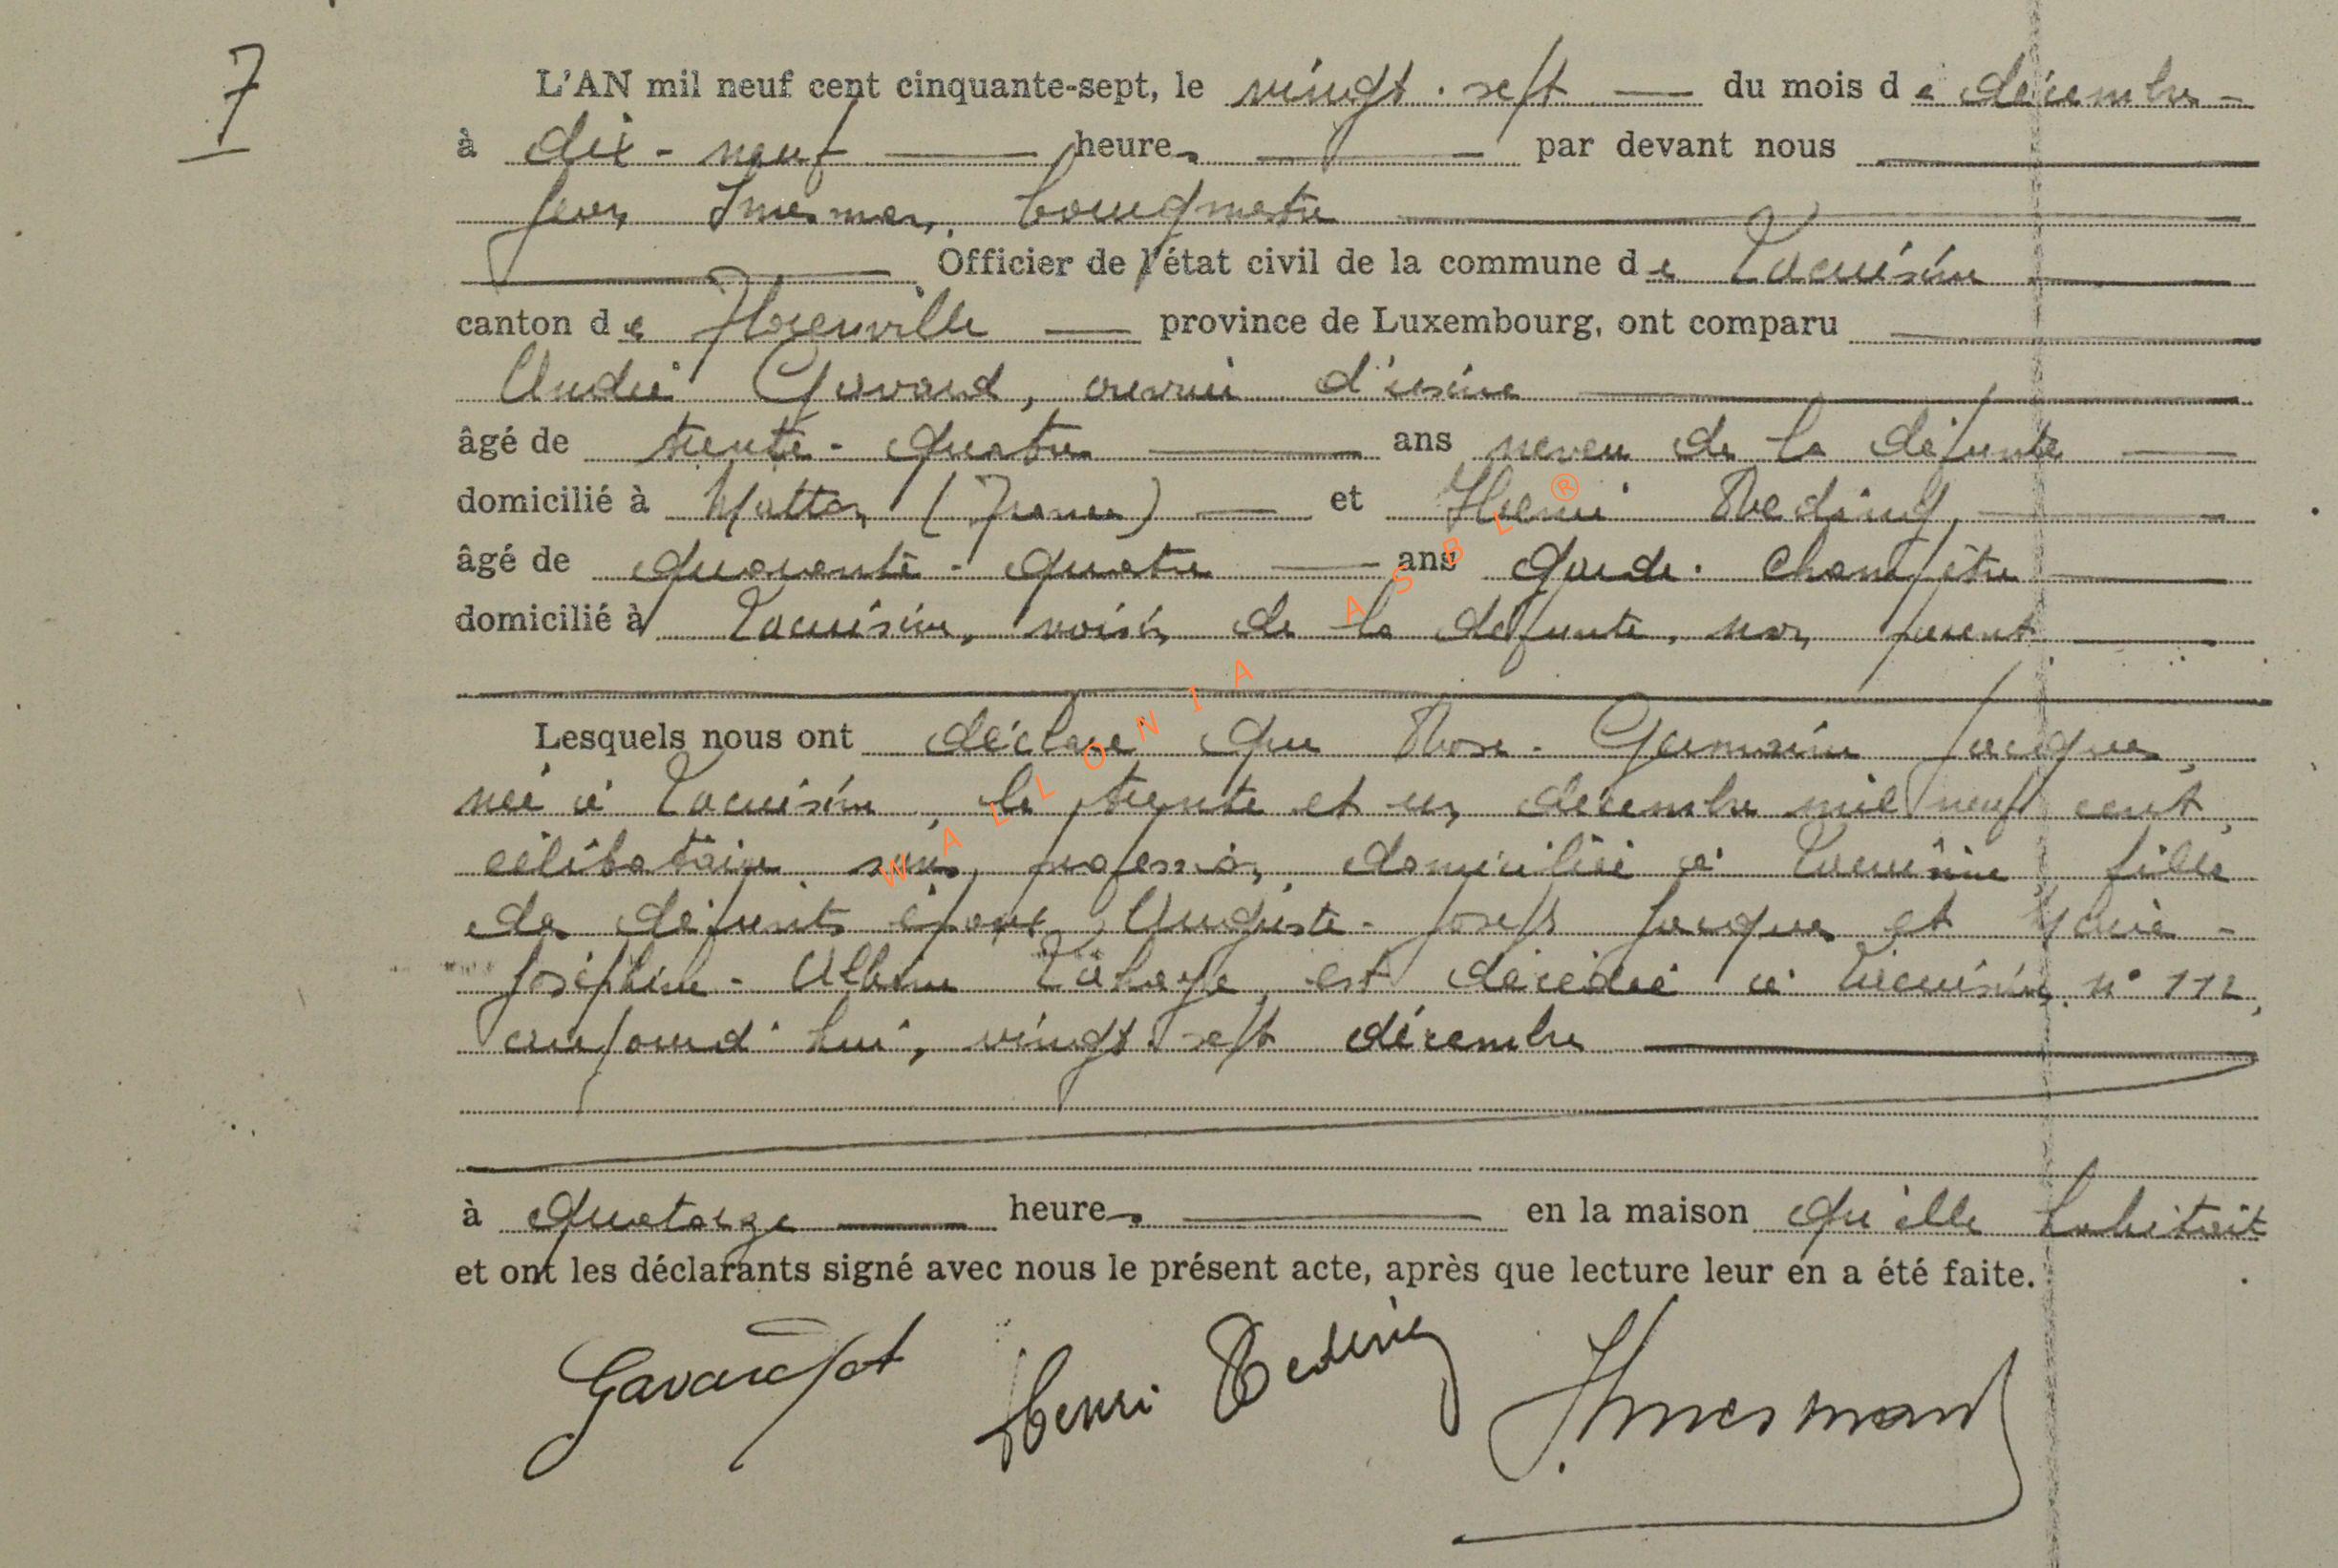 7
L'AN mil neuf cent cinquante-sept, le vingt-sept du mois de décembre
à dix-neuf heures par devant nous
Jean bourgmestre
Officier de l'état civil de la commune de Lacuisine
canton de Florenville province de Luxembourg, ont comparu
André Gavard, ouvrier d'usine
âgé de trente-quatre ans neveu de la défunte
domicilié à Matton (France) et Henri Reding,
âgé de quarante-quatre ans garde-champêtre
domicilié à Lacuisine, voisin de la défunte, non parent
Lesquels nous ont déclaré que Rose-Germaine Jacques,
née à Lacuisine, le trente et un décembre mil neuf cent,
célibataire sans profession, domiciliée à Lacuisine, fille
des défunts époux Auguste-Joseph Jacques et Marie-
Joséphine-Albine Lahaye, est décédée à Lacuisine, n° 112,
aujourd'hui, vingt-sept décembre
à quatorze heures en la maison qu'elle habitait
et ont les déclarants signé avec nous le présent acte, après que lecture leur en a été faite.
Henri Reding
WALLONIA ASBL ®